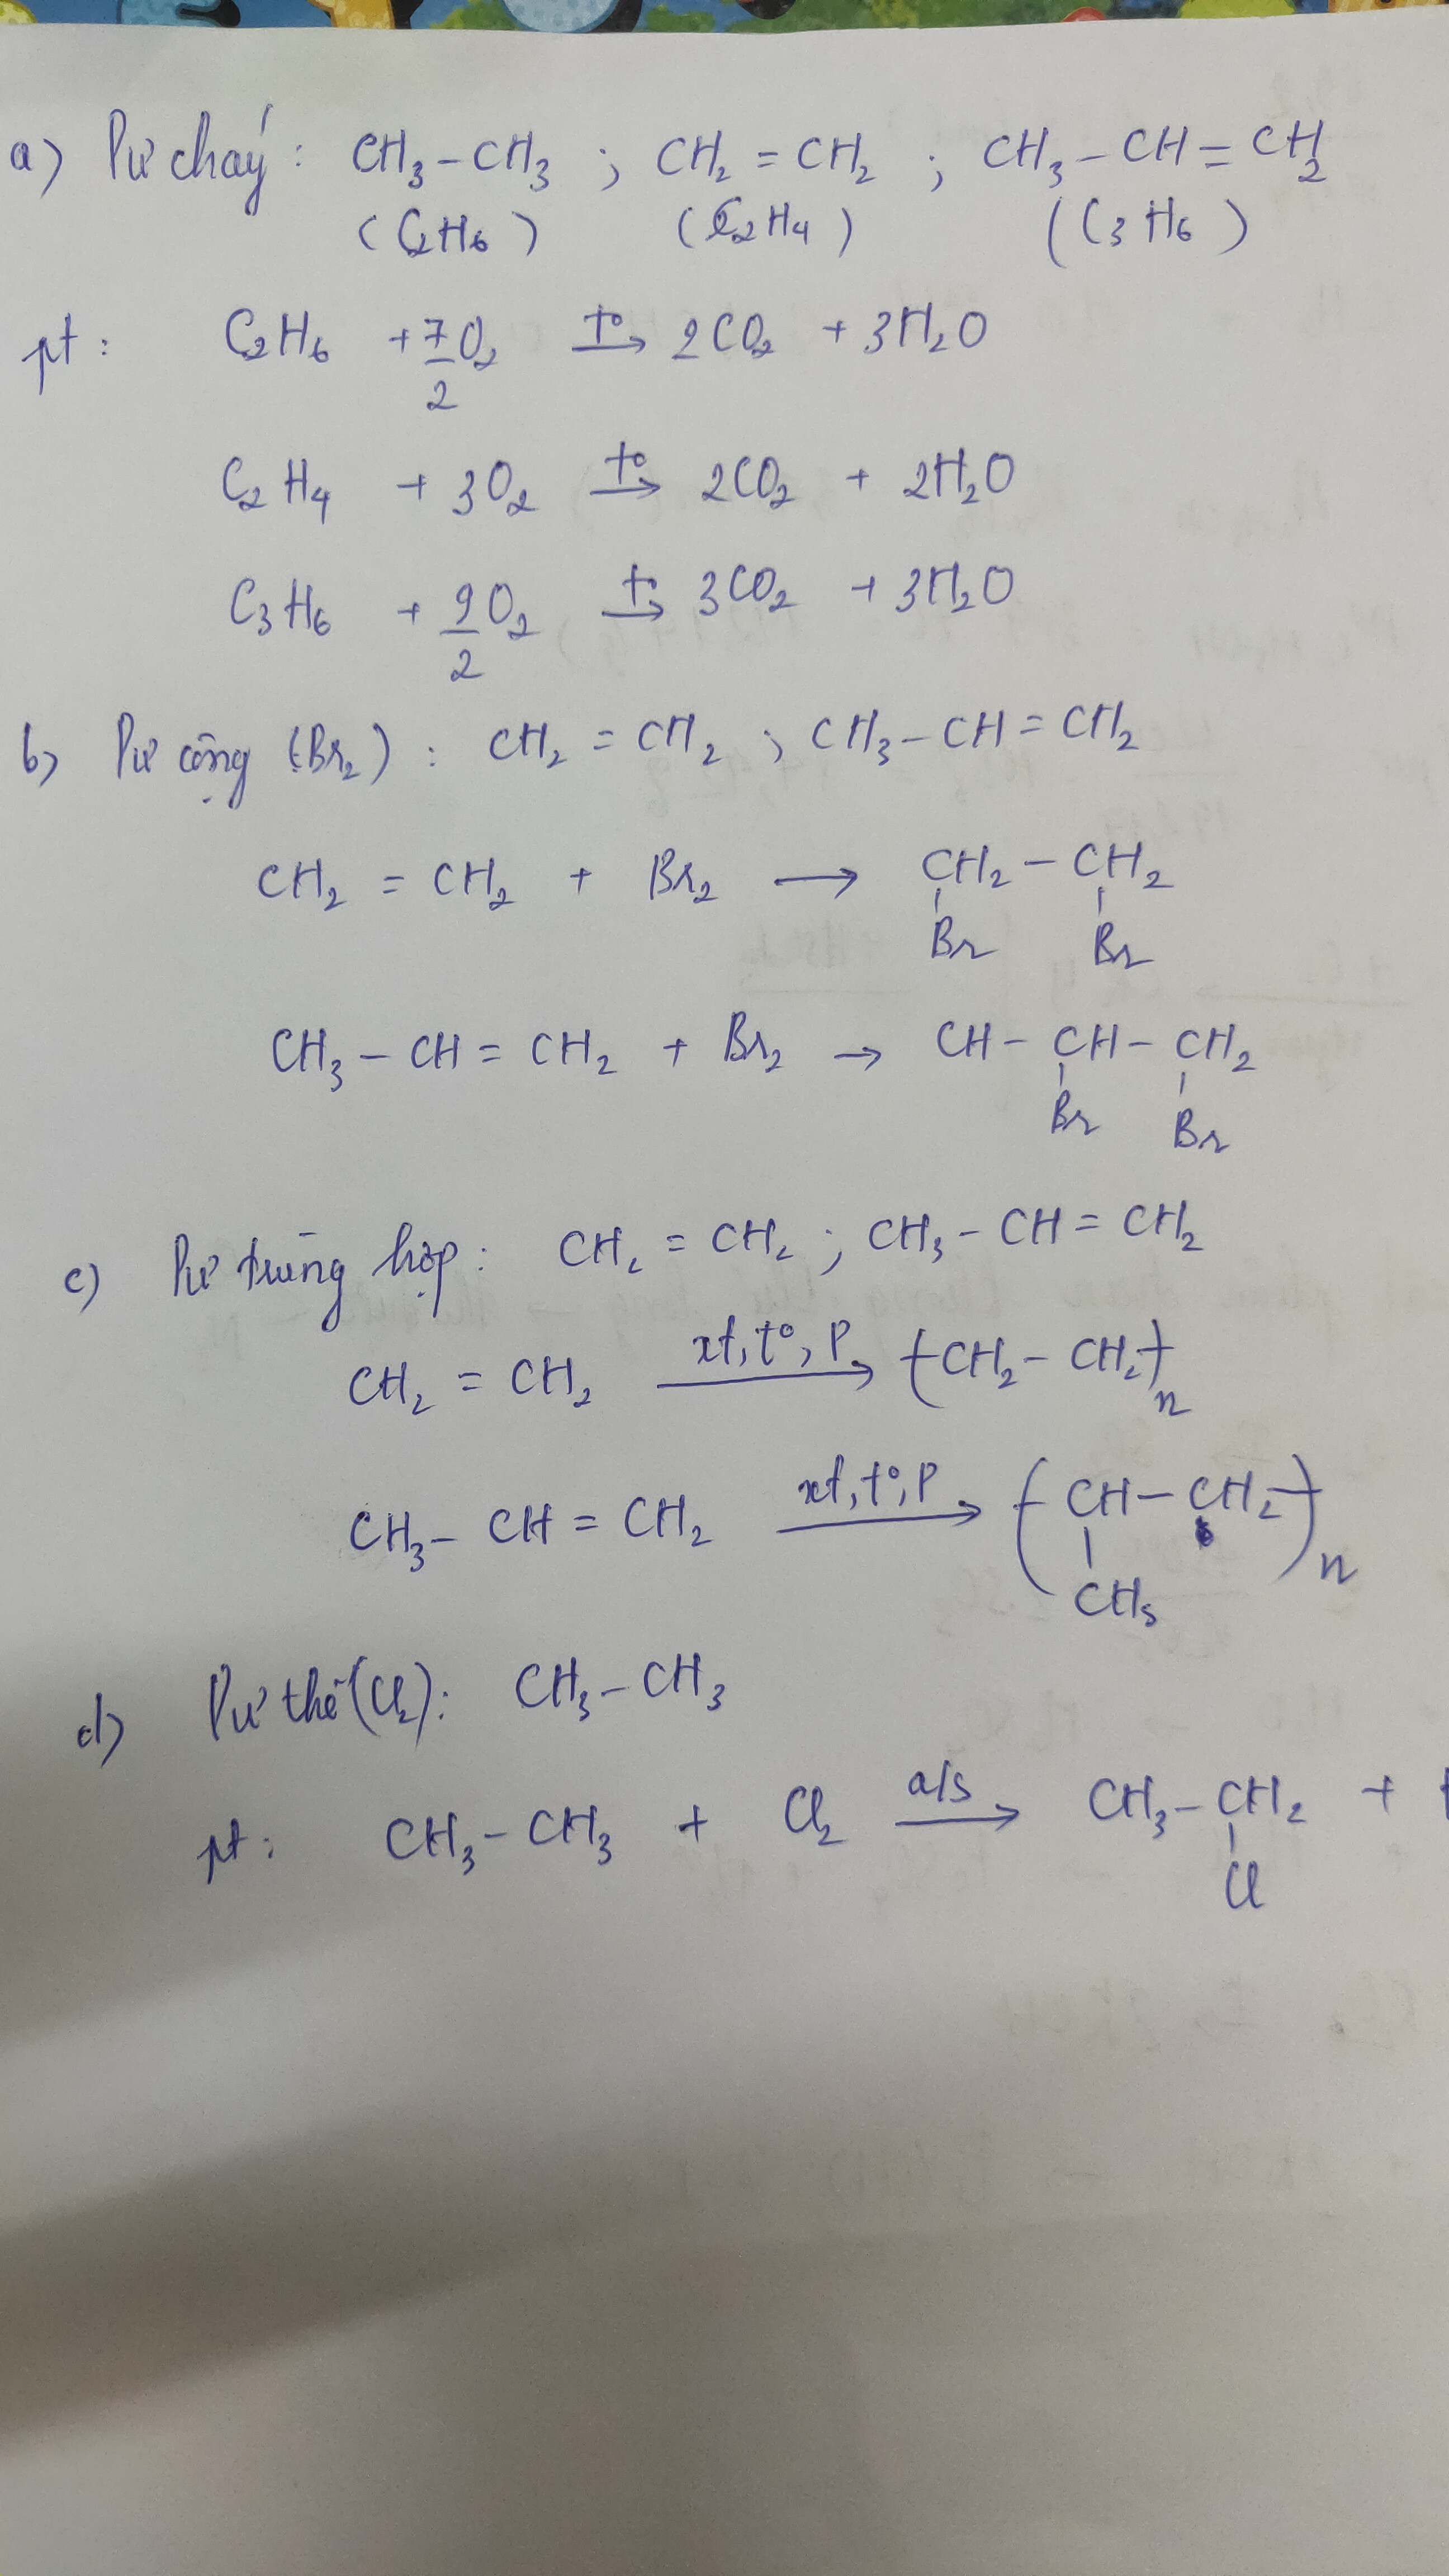 a) Pư cháy : CH₃ – CH₃ ; CH₂ = CH₂ ; CH₃ – CH = CH₂
(C₂H₆) (C₂H₄) (C₃H₆)
pt : C₂H₆ + 7/2 O₂ t°→ 2CO₂ + 3H₂O
C₂H₄ + 3O₂ t°→ 2CO₂ + 2H₂O
C₃H₆ + 9/2 O₂ t°→ 3CO₂ + 3H₂O
b) Pư cộng (Br₂) : CH₂ = CH₂ ; CH₃ – CH = CH₂
CH₂ = CH₂ + Br₂ → CH₂ – CH₂
Br Br
CH₃ – CH = CH₂ + Br₂ → CH – CH – CH₂
Br Br
c) Pư trùng hợp : CH₂ = CH₂ ; CH₃ – CH = CH₂
CH₂ = CH₂ xt, t°, P→ (CH₂ – CH₂)n
CH₃ – CH = CH₂ xt, t°, P→ (CH – CH₂)n
CH₃
d) Pư thế (Cl₂) : CH₃ – CH₃
pt : CH₃ – CH₃ + Cl₂ a/s→ CH₃ – CH₂ +
Cl